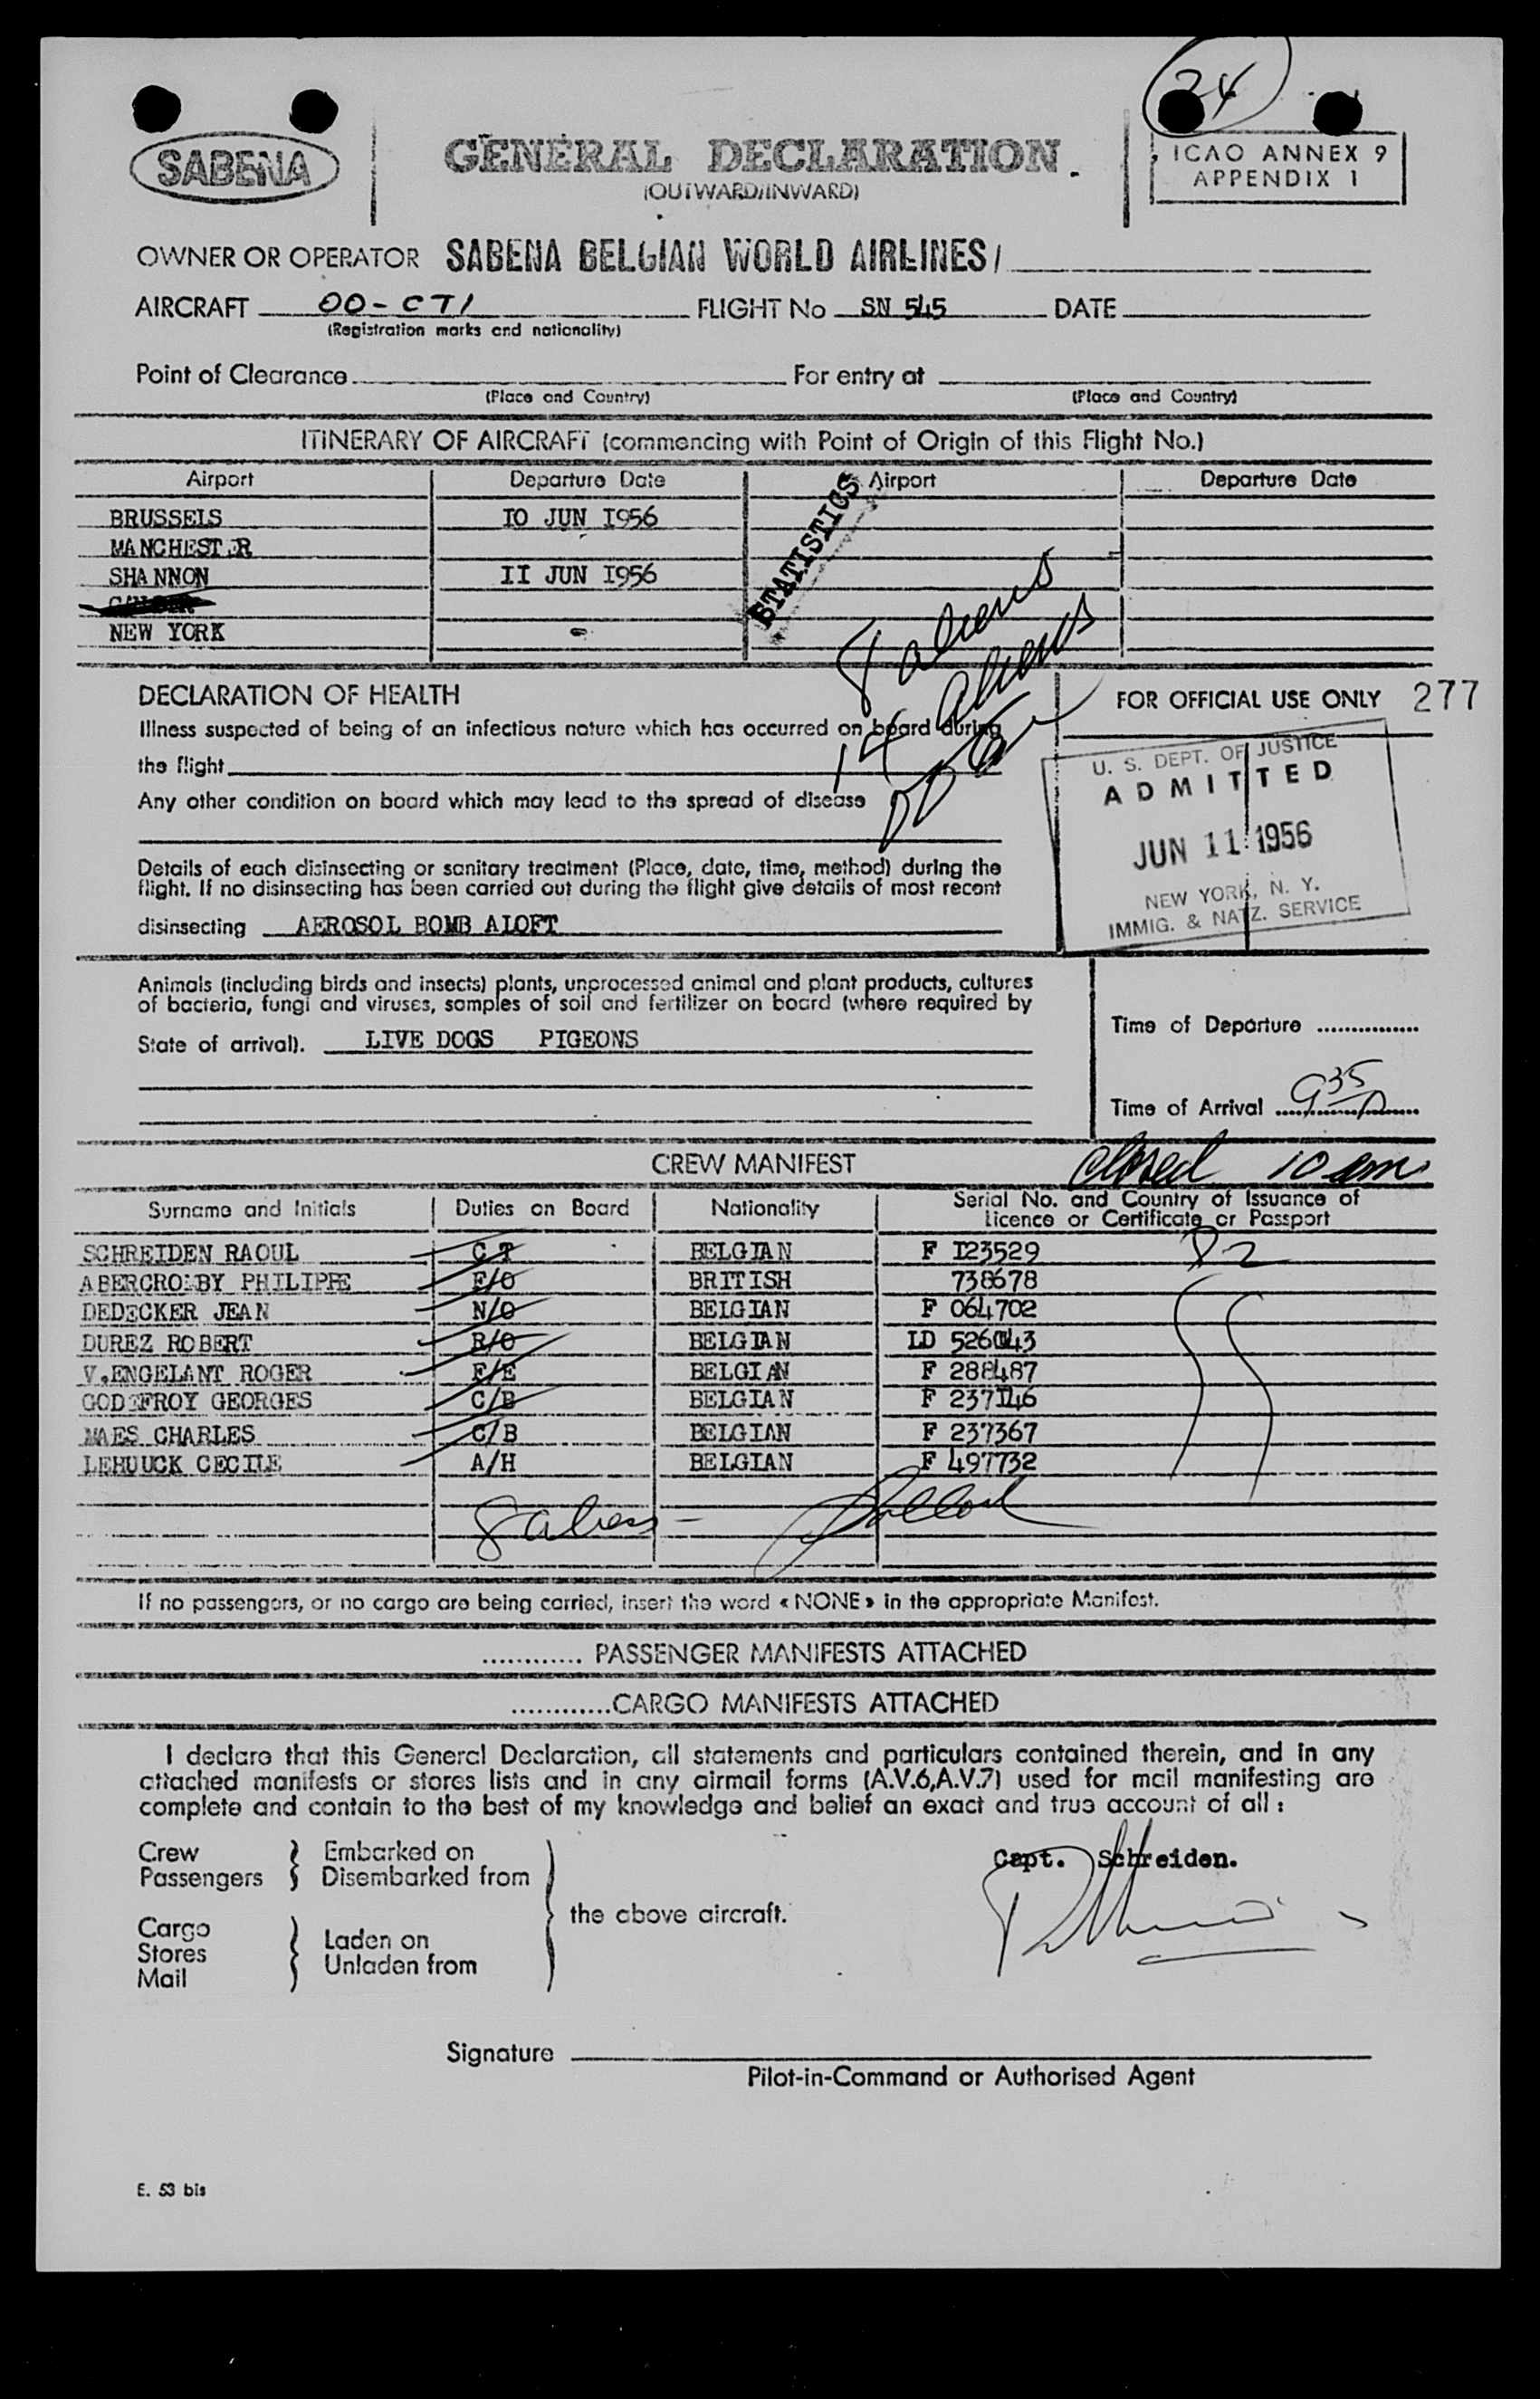 24
SABENA
GENERAL DECLARATION
(OUTWARD/INWARD)
ICAO ANNEX 9
APPENDIX 1
OWNER OR OPERATOR SABENA BELGIAN WORLD AIRLINES/
AIRCRAFT OO-CTI FLIGHT No SN 545 DATE
(Registration marks and nationality)
Point of Clearance For entry at
(Place and Country) (Place and Country)
ITINERARY OF AIRCRAFT (commencing with Point of Origin of this Flight No.)
Airport Departure Date Airport Departure Date
BRUSSELS IO JUN I956
MANCHESTER
SHANNON II JUN I956
NEW YORK
STATISTICS
8 aliens
14 aliens
DECLARATION OF HEALTH
Illness suspected of being of an infectious nature which has occurred on board during
the flight
Any other condition on board which may lead to the spread of disease
Details of each disinsecting or sanitary treatment (Place, date, time, method) during the
flight. If no disinsecting has been carried out during the flight give details of most recent
disinsecting AEROSOL BOMB ALOFT
FOR OFFICIAL USE ONLY 277
U. S. DEPT. OF JUSTICE
ADMITTED
JUN 11 1956
NEW YORK, N. Y.
IMMIG. & NATZ. SERVICE
Animals (including birds and insects) plants, unprocessed animal and plant products, cultures
of bacteria, fungi and viruses, samples of soil and fertilizer on board (where required by
State of arrival). LIVE DOGS PIGEONS
Time of Departure
Time of Arrival 935
closed 10 am
CREW MANIFEST
Surname and Initials Duties on Board Nationality Serial No. and Country of Issuance of
Licence or Certificate or Passport
SCHREIDEN RAOUL CT BELGIAN F I23529
ABERCROMBY PHILIPPE F/O BRITISH 738678
DEDECKER JEAN N/O BELGIAN F 064702
DUREZ ROBERT R/O BELGIAN LD 526043
V.ENGELANT ROGER F/E BELGIAN F 288487
GODEFROY GEORGES C/B BELGIAN F 237I46
MAES CHARLES C/B BELGIAN F 237367
LEHUUCK CECILE A/H BELGIAN F 497732
8 aliens
If no passengers, or no cargo are being carried, insert the word « NONE » in the appropriate Manifest.
............ PASSENGER MANIFESTS ATTACHED
............CARGO MANIFESTS ATTACHED
I declare that this General Declaration, all statements and particulars contained therein, and in any
attached manifests or stores lists and in any airmail forms (A.V.6,A.V.7) used for mail manifesting are
complete and contain to the best of my knowledge and belief an exact and true account of all :
Crew Embarked on
Passengers Disembarked from
the above aircraft.
Cargo
Stores Laden on
Mail Unladen from
Capt. Schreiden.
Signature
Pilot-in-Command or Authorised Agent
E. 53 bis